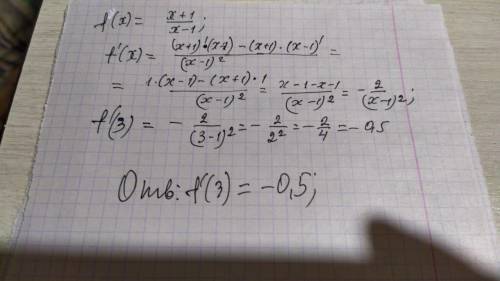 f'(x) = (x+1)/(x-1);
f'(x) = ((x+1)'(x-1) - (x+1)·(x-1)')/(x-1)² =
= (1·(x-1) - (x+1)·1)/(x-1)² = (x-1-x-1)/(x-1)² = -2/(x-1)²;
f'(3) = -2/(3-1)² = -2/2² = -2/4 = -0,5
Отв: f'(3) = -0,5;